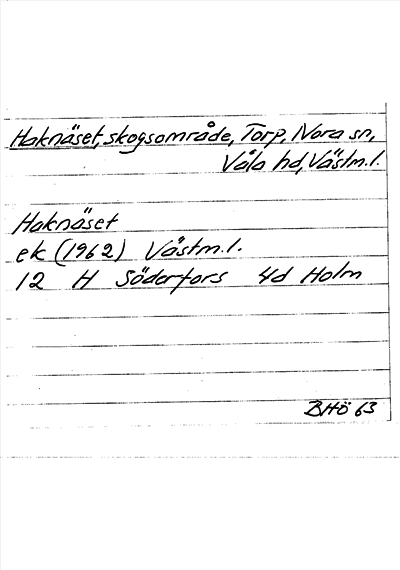 Haknäset, skogsområde, Torp, Nora sn,
Våla hd, Västm.l.
Haknäset
ek (1962) Västm.l.
12 H Söderfors 4d Holm
BHÖ 63